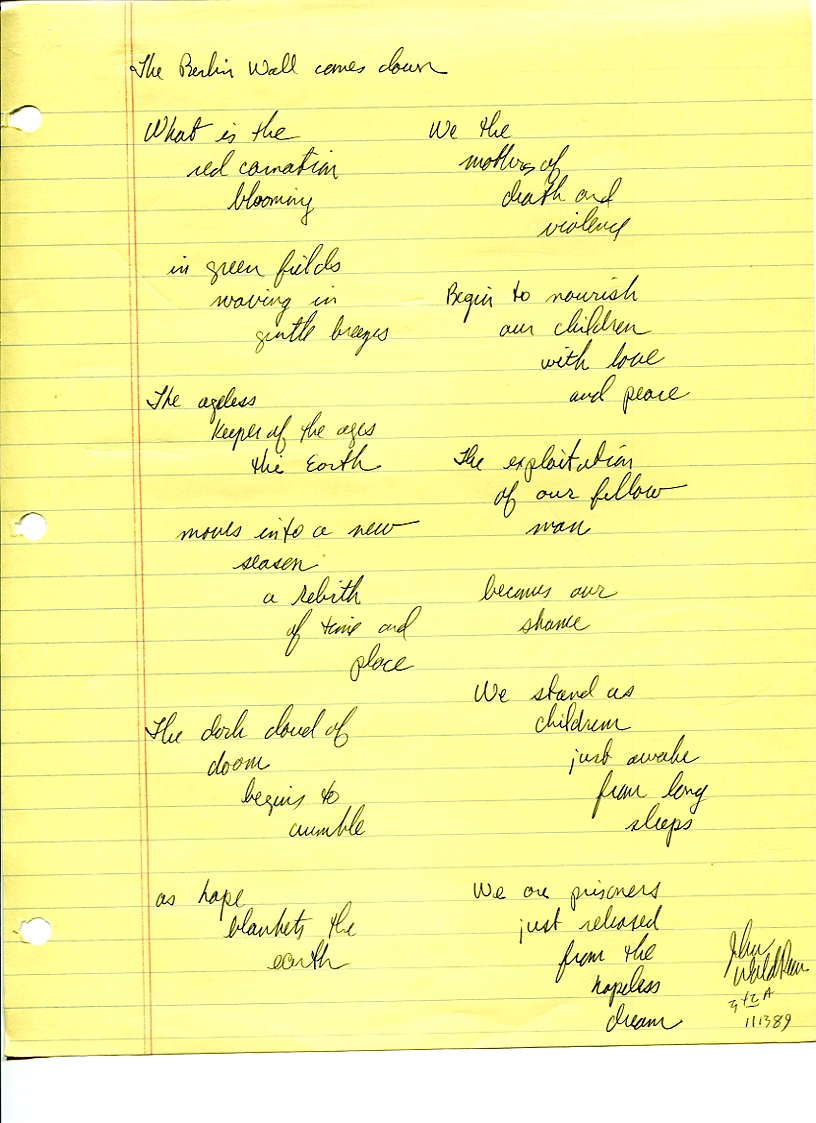 The Berlin Wall comes down
What is the
red carnation
blooming
in green fields
waving in
gentle breezes
The ageless
keeper of the ages
the Earth
moves into a new
season
a rebith
of time and
place
The dark cloud of
doom
begins to
crumble
as hope
blankets the
earth
We the
mothers of
death and
violence
Begin to nourish
our children
with love
and peace
The exploitation
of our fellow
man
becomes our
shame
We stand as
children
just awake
from long
sleeps
We are prisoners
just released
from the
hopeless
dream
John
111389